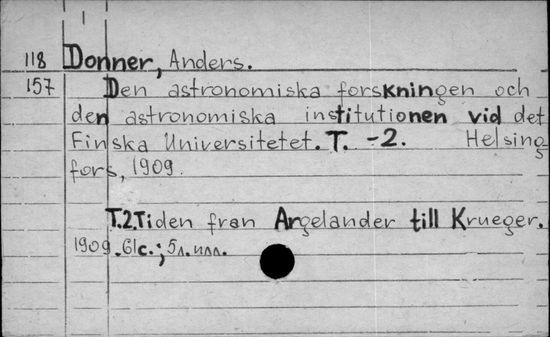 118 Donner, Anders.
157 Den astronomiska forskningen och
den astronomiska institutionen vid det
Finska Universitetet. T. -2. Helsing
fors, 1909.
T.2. Tiden fran Argelander till Krueger.
1909. 61c.; 5л. илл.